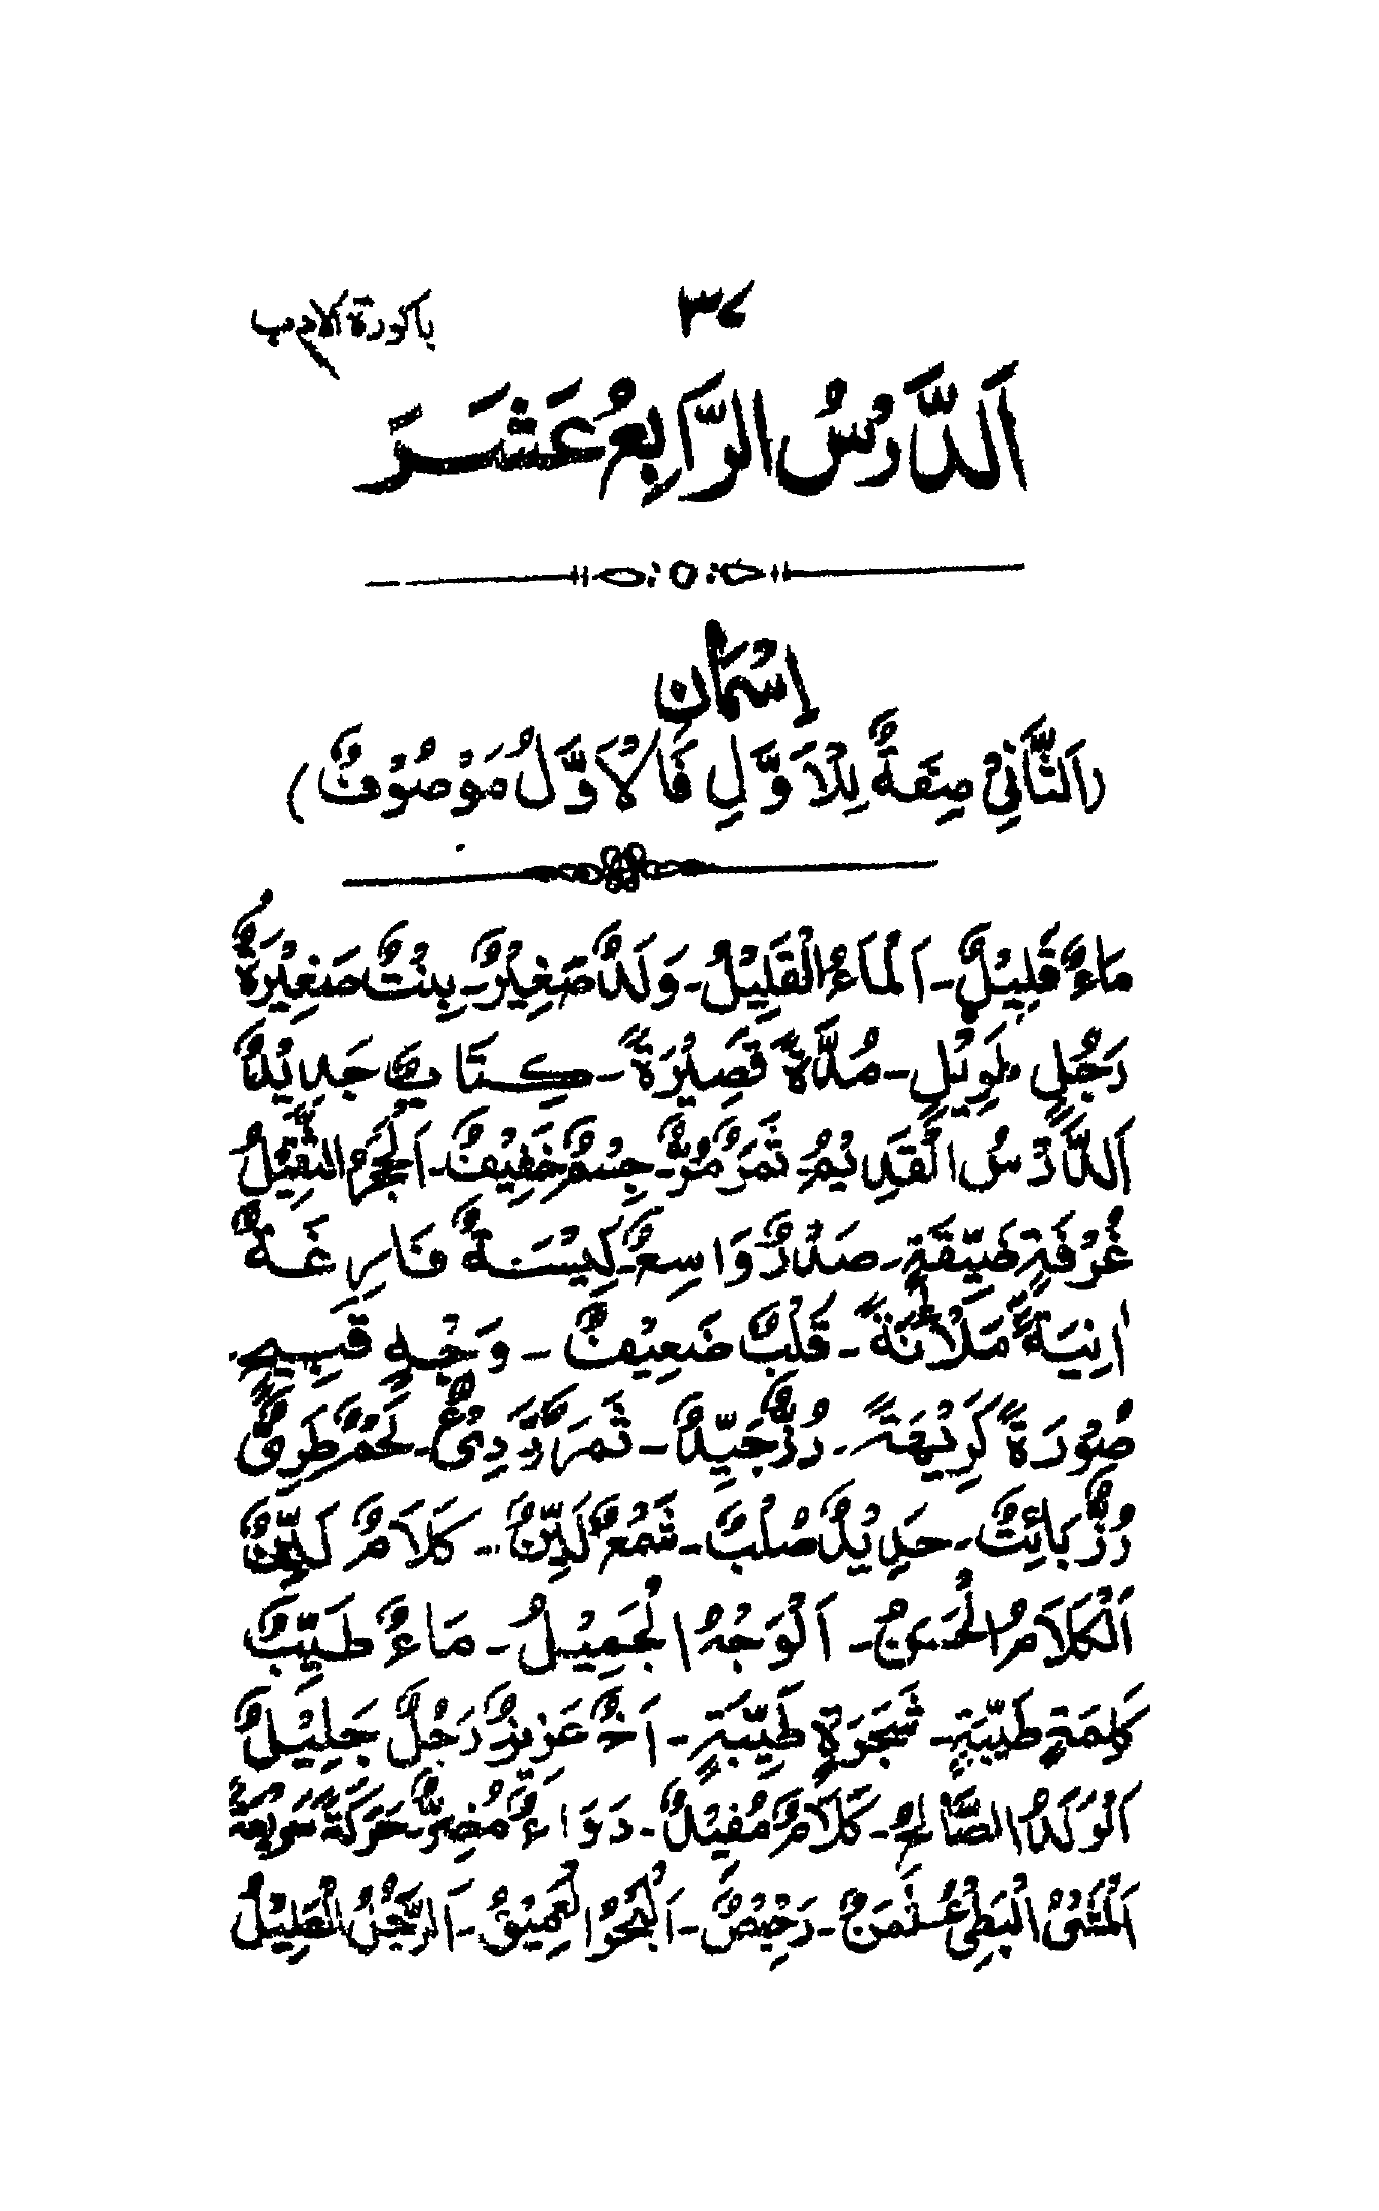 باكورة الادب
٣٤
اَلدَّرْسُ الرَّابِعُ عَشَرَ
اِسْمَانِ
(اَلثَّانِيْ صِفَةٌ لِلْاَوَّلِ فَالْاَوَّلُ مَوْصُوْفٌ)
مَاءٌ قَلِيْلٌ - اَلْمَاءُ الْقَلِيْلُ - وَلَدٌ صَغِيْرٌ - بِنْتٌ صَغِيْرَةٌ
رَجُلٍ طَوِيْلٍ - مُدَّةً قَصِيْرَةً - كِتَابٌ جَدِيْدٌ
اَلدَّرْسُ الْقَدِيْمُ - ثَمَرٌ مُرٌّ - جِسْمٌ خَفِيْفٌ - اَلْحَجَرُ الثَّقِيْلُ
غُرْفَةٍ ضَيِّقَةٍ - صَدْرٌ وَاسِعٌ - كِيْسَةٌ فَارِغَةٌ
اٰنِيَةً مَلْاٰنَةً - قَلْبٌ ضَعِيْفٌ - وَجْهٍ قَبِيْحٍ
صُوْرَةً كَرِيْهَةً - رُزٌّ جَيِّدٌ - ثَمَرٌ رَّدِيْءٌ - لَحْمٌ طَرِيٌّ
رُزٌّ بَائِتٌ - حَدِيْدٌ صُلْبٌ - شَمْعٌ لَيِّنٌ - كَلَامٌ لَيِّنٌ
اَلْكَلَامُ الْحَسَنُ - اَلْوَجْهُ الْجَمِيْلُ - مَاءٌ طَيِّبٌ
كَلِمَةٍ طَيِّبَةٍ - شَجَرَةٍ طَيِّبَةٍ - اَخٌ عَزِيْزٌ رَجُلٌ جَلِيْلٌ
اَلْوَلَدُ الصَّالِحُ - كَلَامٌ مُفِيْدٌ - دَوَاءٌ مُضِرٌّ - حَرَكَةً سَرِيْعَةً
اَلْمَشْيُ الْبَطِيْءُ - ثَمَنٌ رَخِيْصٌ - اَلْبَحْرُ الْعَمِيْقُ - اَلرَّجُلُ الْعَلِيْلُ